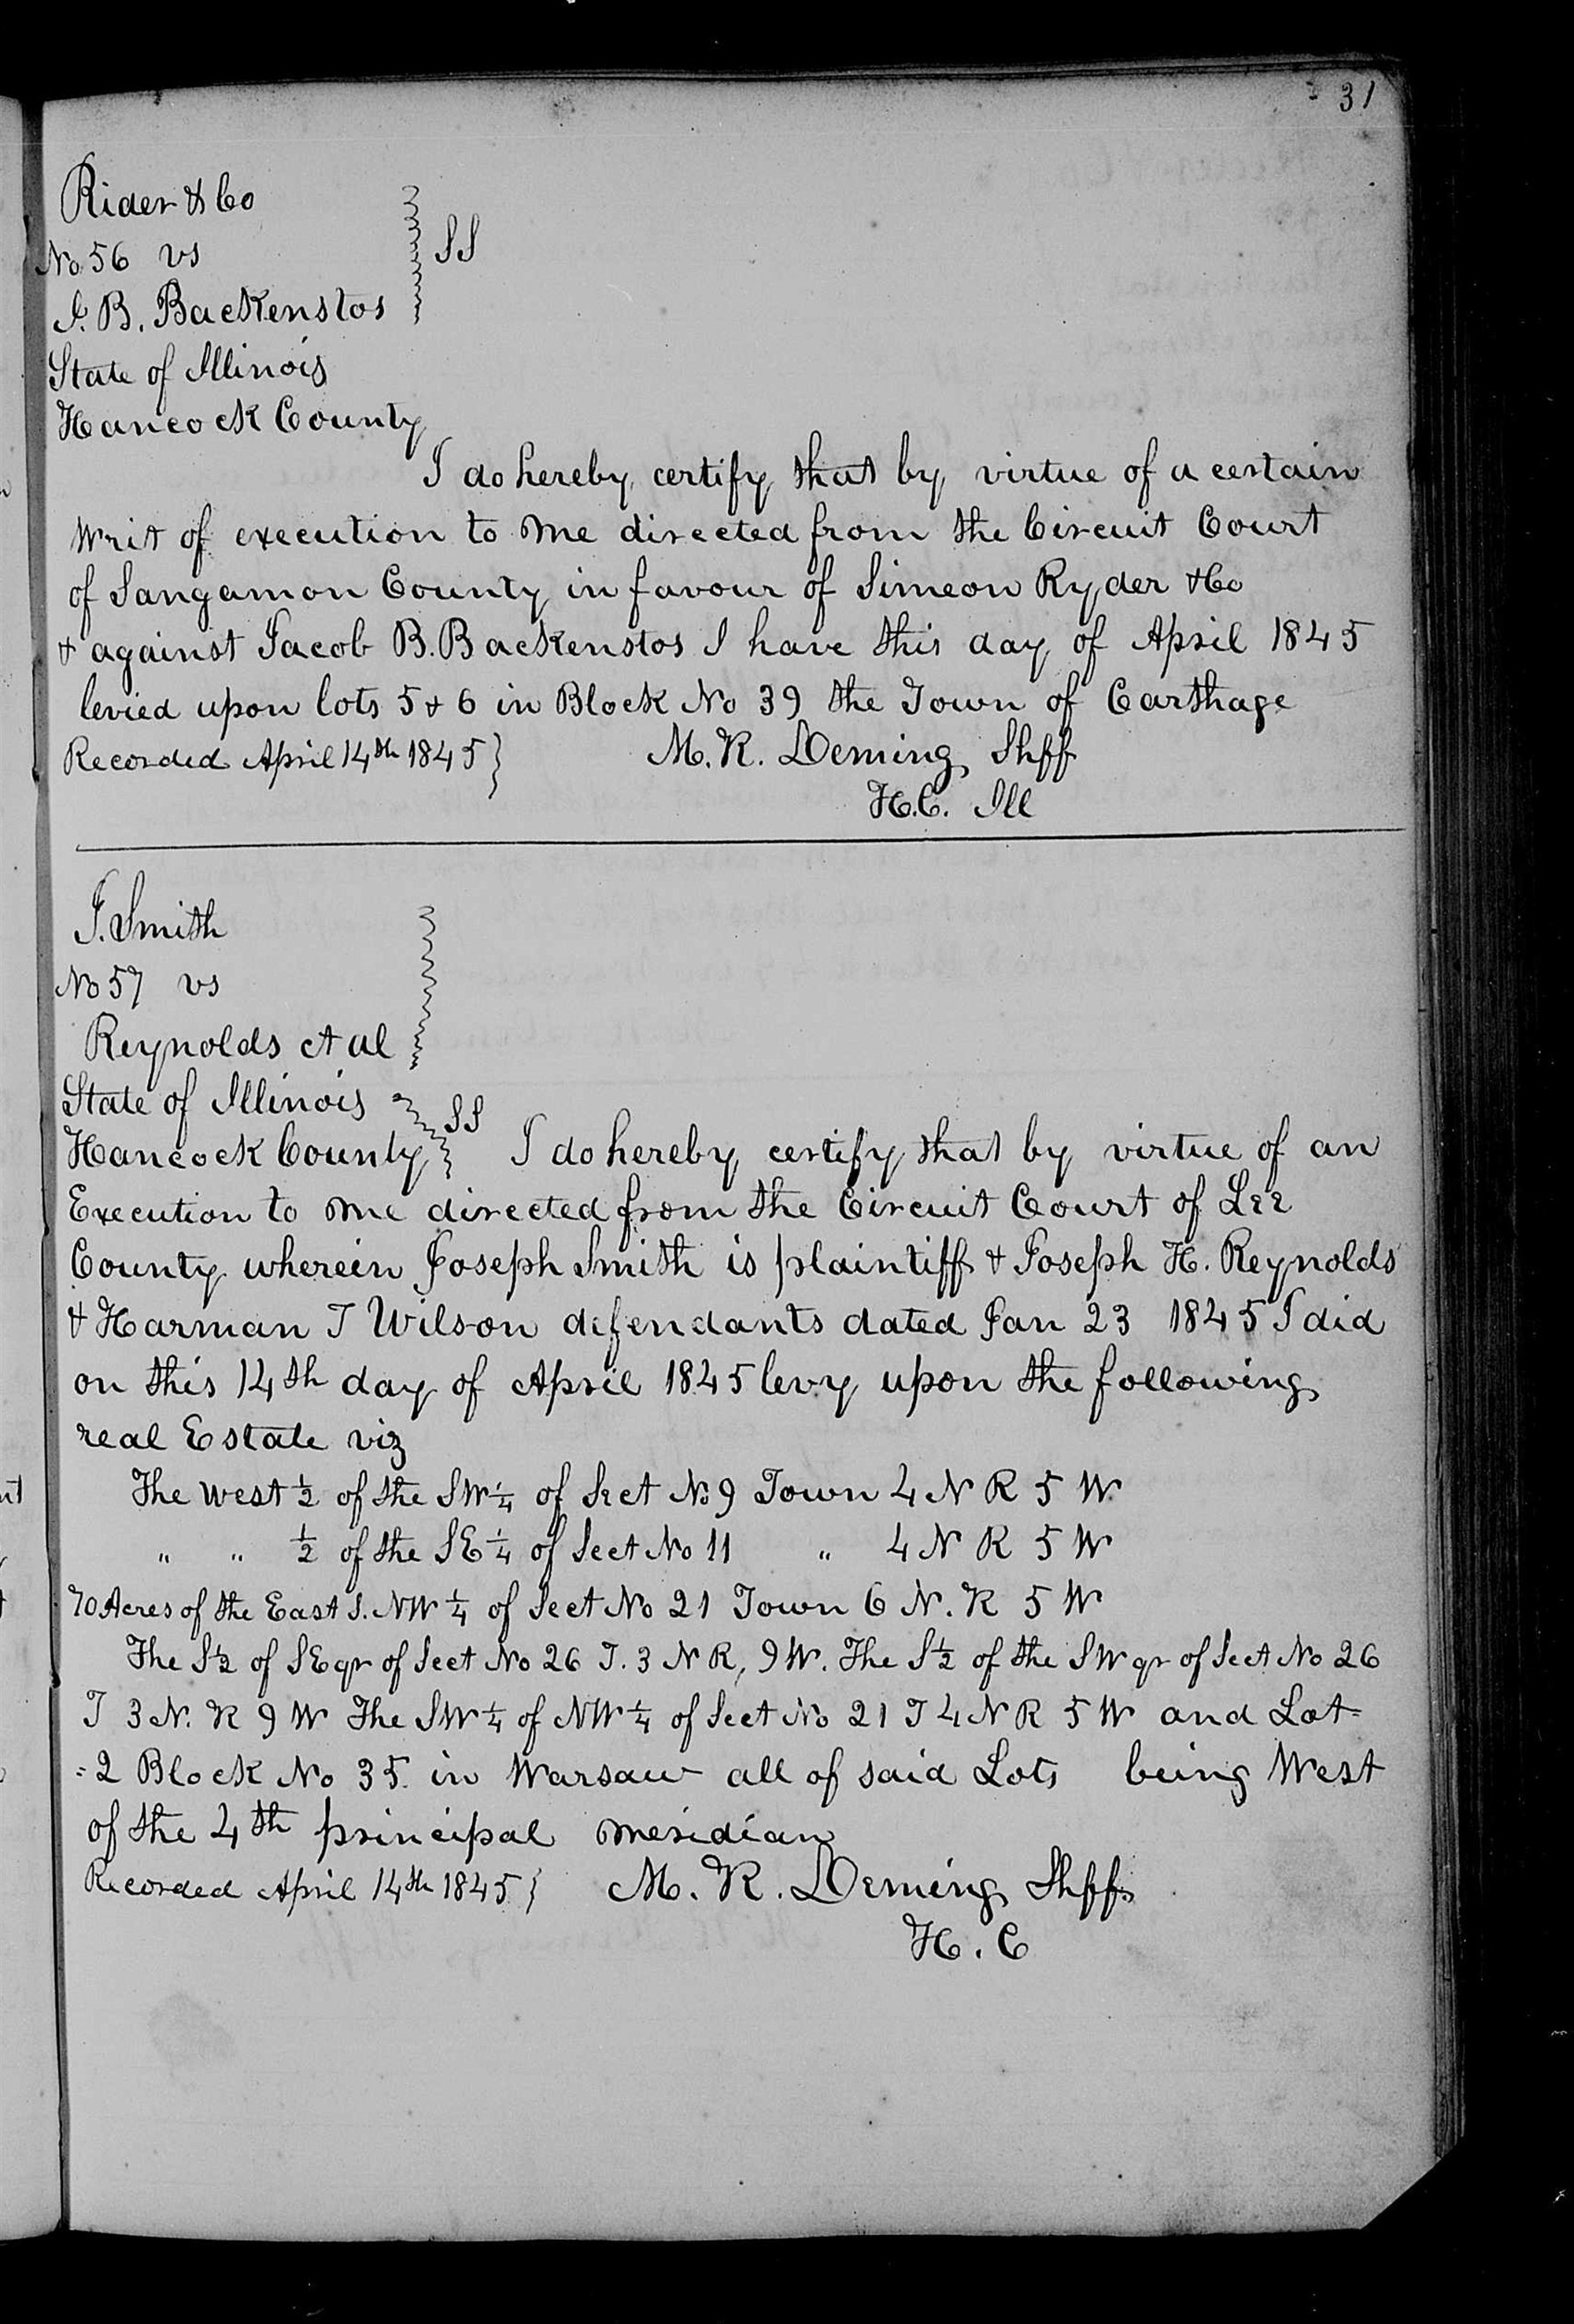 31
Rider & Co
No 56 vs
J. B. Backenstos
SS
State of Illinois
Hancock County
I do hereby certify that by virtue of a certain
Writ of execution to me directed from the Circuit Court
of Sangamon County in favour of Simeon Ryder & Co
& against Jacob B. Backenstos I have this day of April 1845
levied upon lots 5 & 6 in Block No 39 the Town of Carthage
Recorded April 14th 1845 } M. R. Deming Shff
H.C. Ill
J. Smith
No 57 vs
Reynolds et al
State of Illinois
SS
Hancock County I do hereby certify that by virtue of an
Execution to me directed from the Circuit Court of Lee
County wherein Joseph Smith is plaintiff & Joseph H. Reynolds
& Harman T Wilson defendants dated Jan 23 1845 I did
on this 14th day of April 1845 levy upon the following
real Estate viz
The West ½ of the SW ¼ of Sect No 9 Town 4 N R 5 W
" " ½ of the SE ¼ of Sect No 11 " 4 N R 5 W
70 Acres of the East S. NW ¼ of Sect No 21 Town 6 N. R 5 W
The S½ of SE qr of Sect No 26 T. 3 N R, 9 W. The S½ of the SW qr of Sect No 26
T 3 N. R 9 W The SW ¼ of NW ¼ of Sect No 21 T 4 N R 5 W and Lot=
=2 Block No 35. in Warsaw all of said Lots being West
of the 4th principal meridian
Recorded April 14th 1845 } M. R. Deming Shff
H. C